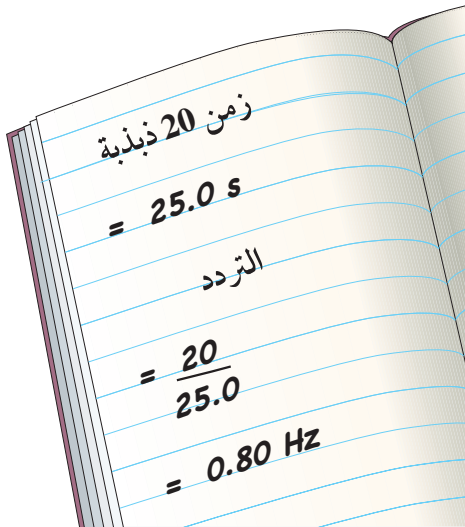 زمن 20 ذبذبة
= 25.0 s
التردد
= 20/25.0
= 0.80 Hz